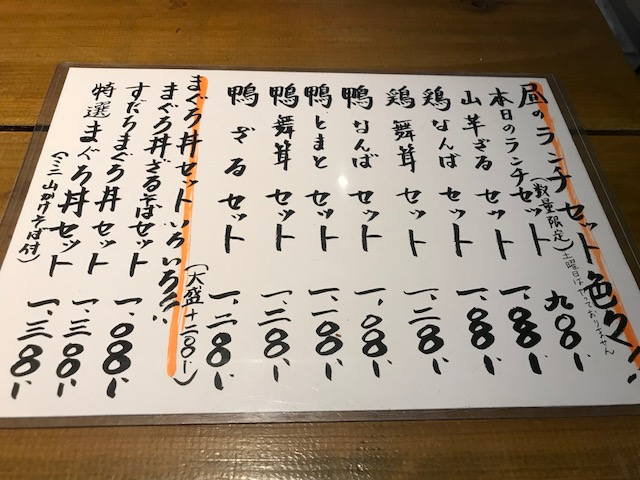 昼のランチセット色々〃
本日のランチセット 九〇〇円
(数量限定)
土曜日はやっておりません
山芋ざるセット 一、〇〇〇円
鶏なんばセット 一、〇〇〇円
鶏舞茸セット 一、二〇〇円
鴨なんばセット 一、〇〇〇円
鴨とまとセット 一、一〇〇円
鴨舞茸セット 一、二〇〇円
鴨ざるセット 一、二〇〇円
まぐろ丼セットいろいろ〃
(大盛+二〇〇円)
まぐろ丼ざるそばセット 一、〇〇〇円
すだちまぐろ丼セット 一、三〇〇円
特選まぐろ丼セット 一、三〇〇円
(ミニ山かけそば付)